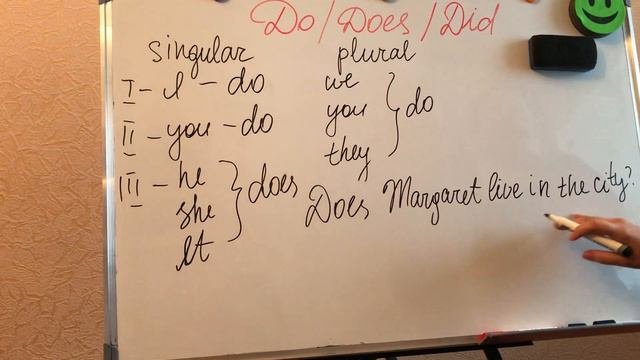 Do/Does/Did
singular plural
I - I - do we
II - you - do you } do
they
III - he } does
she
It
Does Margaret live in the city?